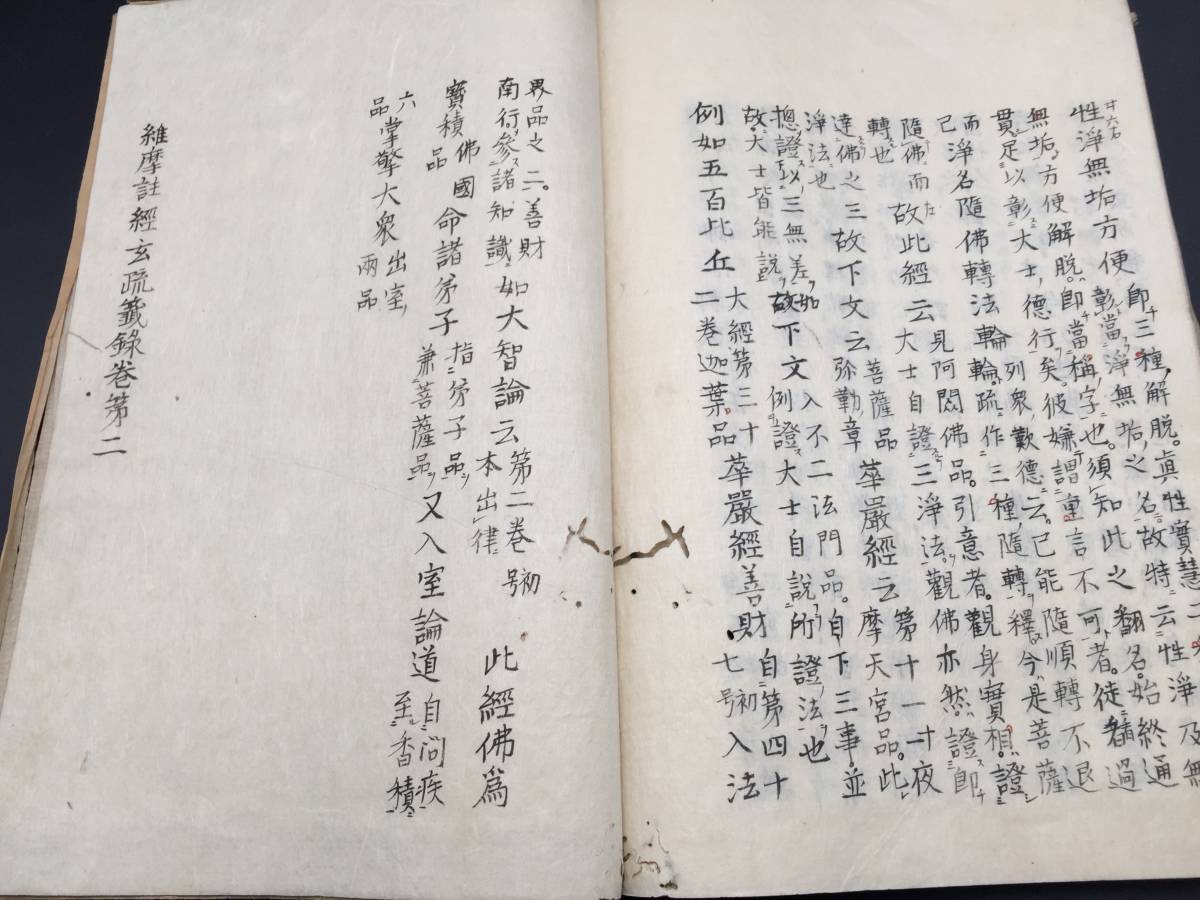 廿六右
性淨無垢方便
即三種解脱。眞性實慧
彰當淨無垢之名。故特云性淨及無
無垢方便解脱。即當稱字也。須知此之翻名。始終通
貫足以彰大士德行矣。彼嫌謂重言不可者。徒過
而已
淨名隨佛轉法輪
列衆歎德云。已能隨順轉不退
輪疏作三種隨轉釋今是菩薩
隨佛而轉也
故此經云
見阿閦佛品。引意者。觀身實相。證
大士自證三淨法。觀佛亦然。證即
達佛之三淨法也
故下文云
菩薩品弥勒章
華嚴經云
第十一十夜摩天宮品。此
總證以三無差故大士皆能説
故下文
入不二法門品。自下三事並
例證大士自説所證法也
例如五百比丘
大經第三十二卷迦葉品
華嚴經善財
自第四十七号初入法
界品之二。善財
南行參諸知識
如大智論云
第二卷号初
本出律
此經佛爲
寳積
佛國品
命諸弟子
指弟子品
兼菩薩品
又入室論道
自問疾
至香積
六品
掌擎大衆
出室
兩品
維摩註經玄疏籤錄卷第二